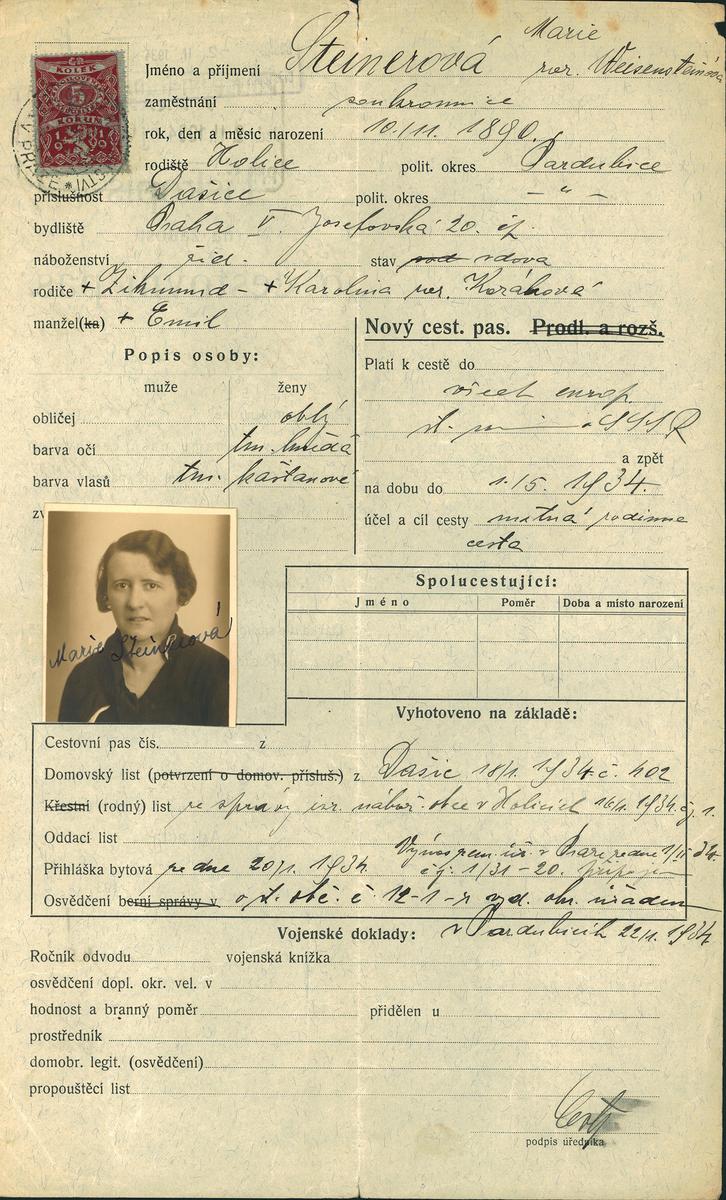 ČR
KOLEK
5
KORUN
1919
V PRAZE
Marie
Jméno a příjmení Steinerová roz. Weisensteinová
zaměstnání soukromnice
rok, den a měsíc narození 10./11. 1890.
rodiště Holice polit. okres Pardubice
příslušnost Dašice polit. okres — " —
bydliště Praha V. Josefovská 20. čp.
náboženství žid. stav vdova
rodiče + Zikmund – + Karolina roz. Kozáková
manžel(ka) + Emil
Nový cest. pas. Prodl. a rozš.
Popis osoby:
muže ženy
obličej oblý
barva očí tm. hnědá
barva vlasů tm. kaštanové
Platí k cestě do
všech europ.
st. SSSR
a zpět
na dobu do 1./5. 1934.
účel a cíl cesty nutná rodinná
cesta
Marie Steinerová
Spolucestující:
Jméno Poměr Doba a místo narození
Vyhotoveno na základě:
Cestovní pas čís. z
Domovský list (potvrzení o domov. přísluš.) z Dašic 18/1. 1934 č. 402
Křestní (rodný) list ze správy izr. nábož. obce v Holicích 16/1. 1934 čj. 1.
Oddací list
Přihláška bytová ze dne 20/1. 1934. čj. 1/31-20.
Osvědčení berní správy v o st. obč. č. 12-1-7 vyd. okr. úřadem
Vojenské doklady: v Pardubicích 22/1. 1934
Ročník odvodu vojenská knížka
osvědčení dopl. okr. vel. v
hodnost a branný poměr přidělen u
prostředník
domobr. legit. (osvědčení)
propouštěcí list
podpis úředníka